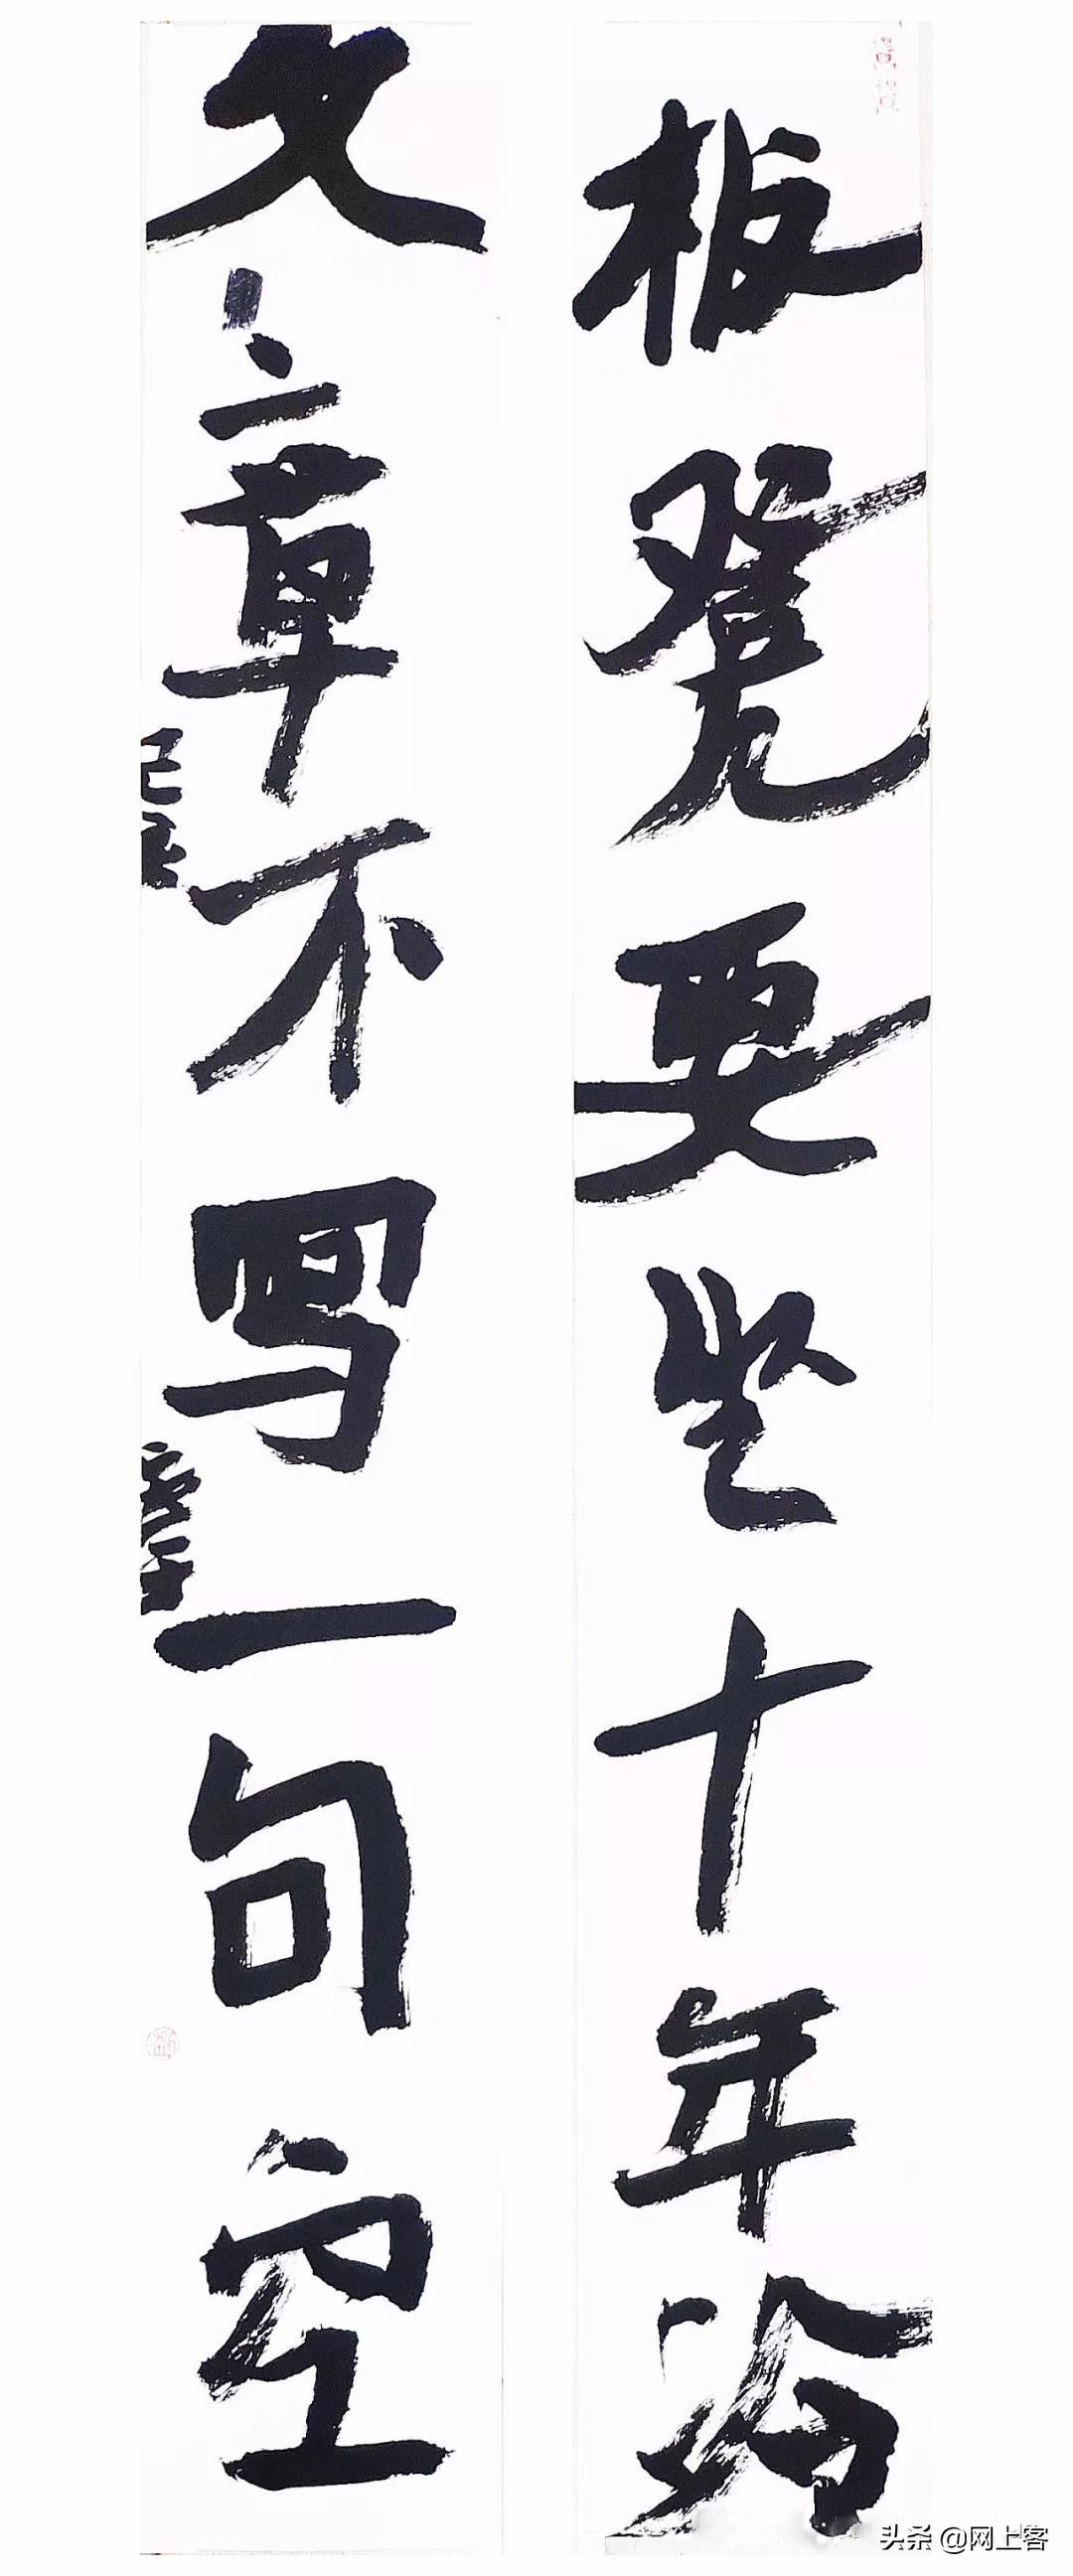 板凳要坐十年冷
文章不写一句空
头条 @网上客